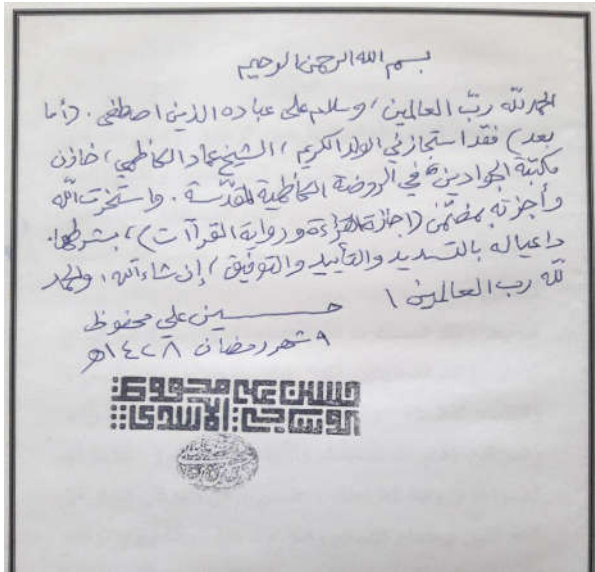 بسم الله الرحمن الرحيم
الحمد لله ربّ العالمين، وسلام على عباده الذين اصطفى. (أما
بعد) فقد استجازني الولد الكريم، الشيخ عماد الكاظمي، خازن
مكتبة الجوادين في الروضة الكاظمية المقدّسة. واستخرت الله
وأجزته بمضمّن (إجازة القراءة ورواية القرآات)، بشرطها.
داعياً له بالتسديد والتأييد والتوفيق، إن شاء الله، والحمد
لله رب العالمين
حسين علي محفوظ
٩ شهر رمضان ١٤٢٨هـ
حسين علي محفوظ
الوشاحي الأسدي